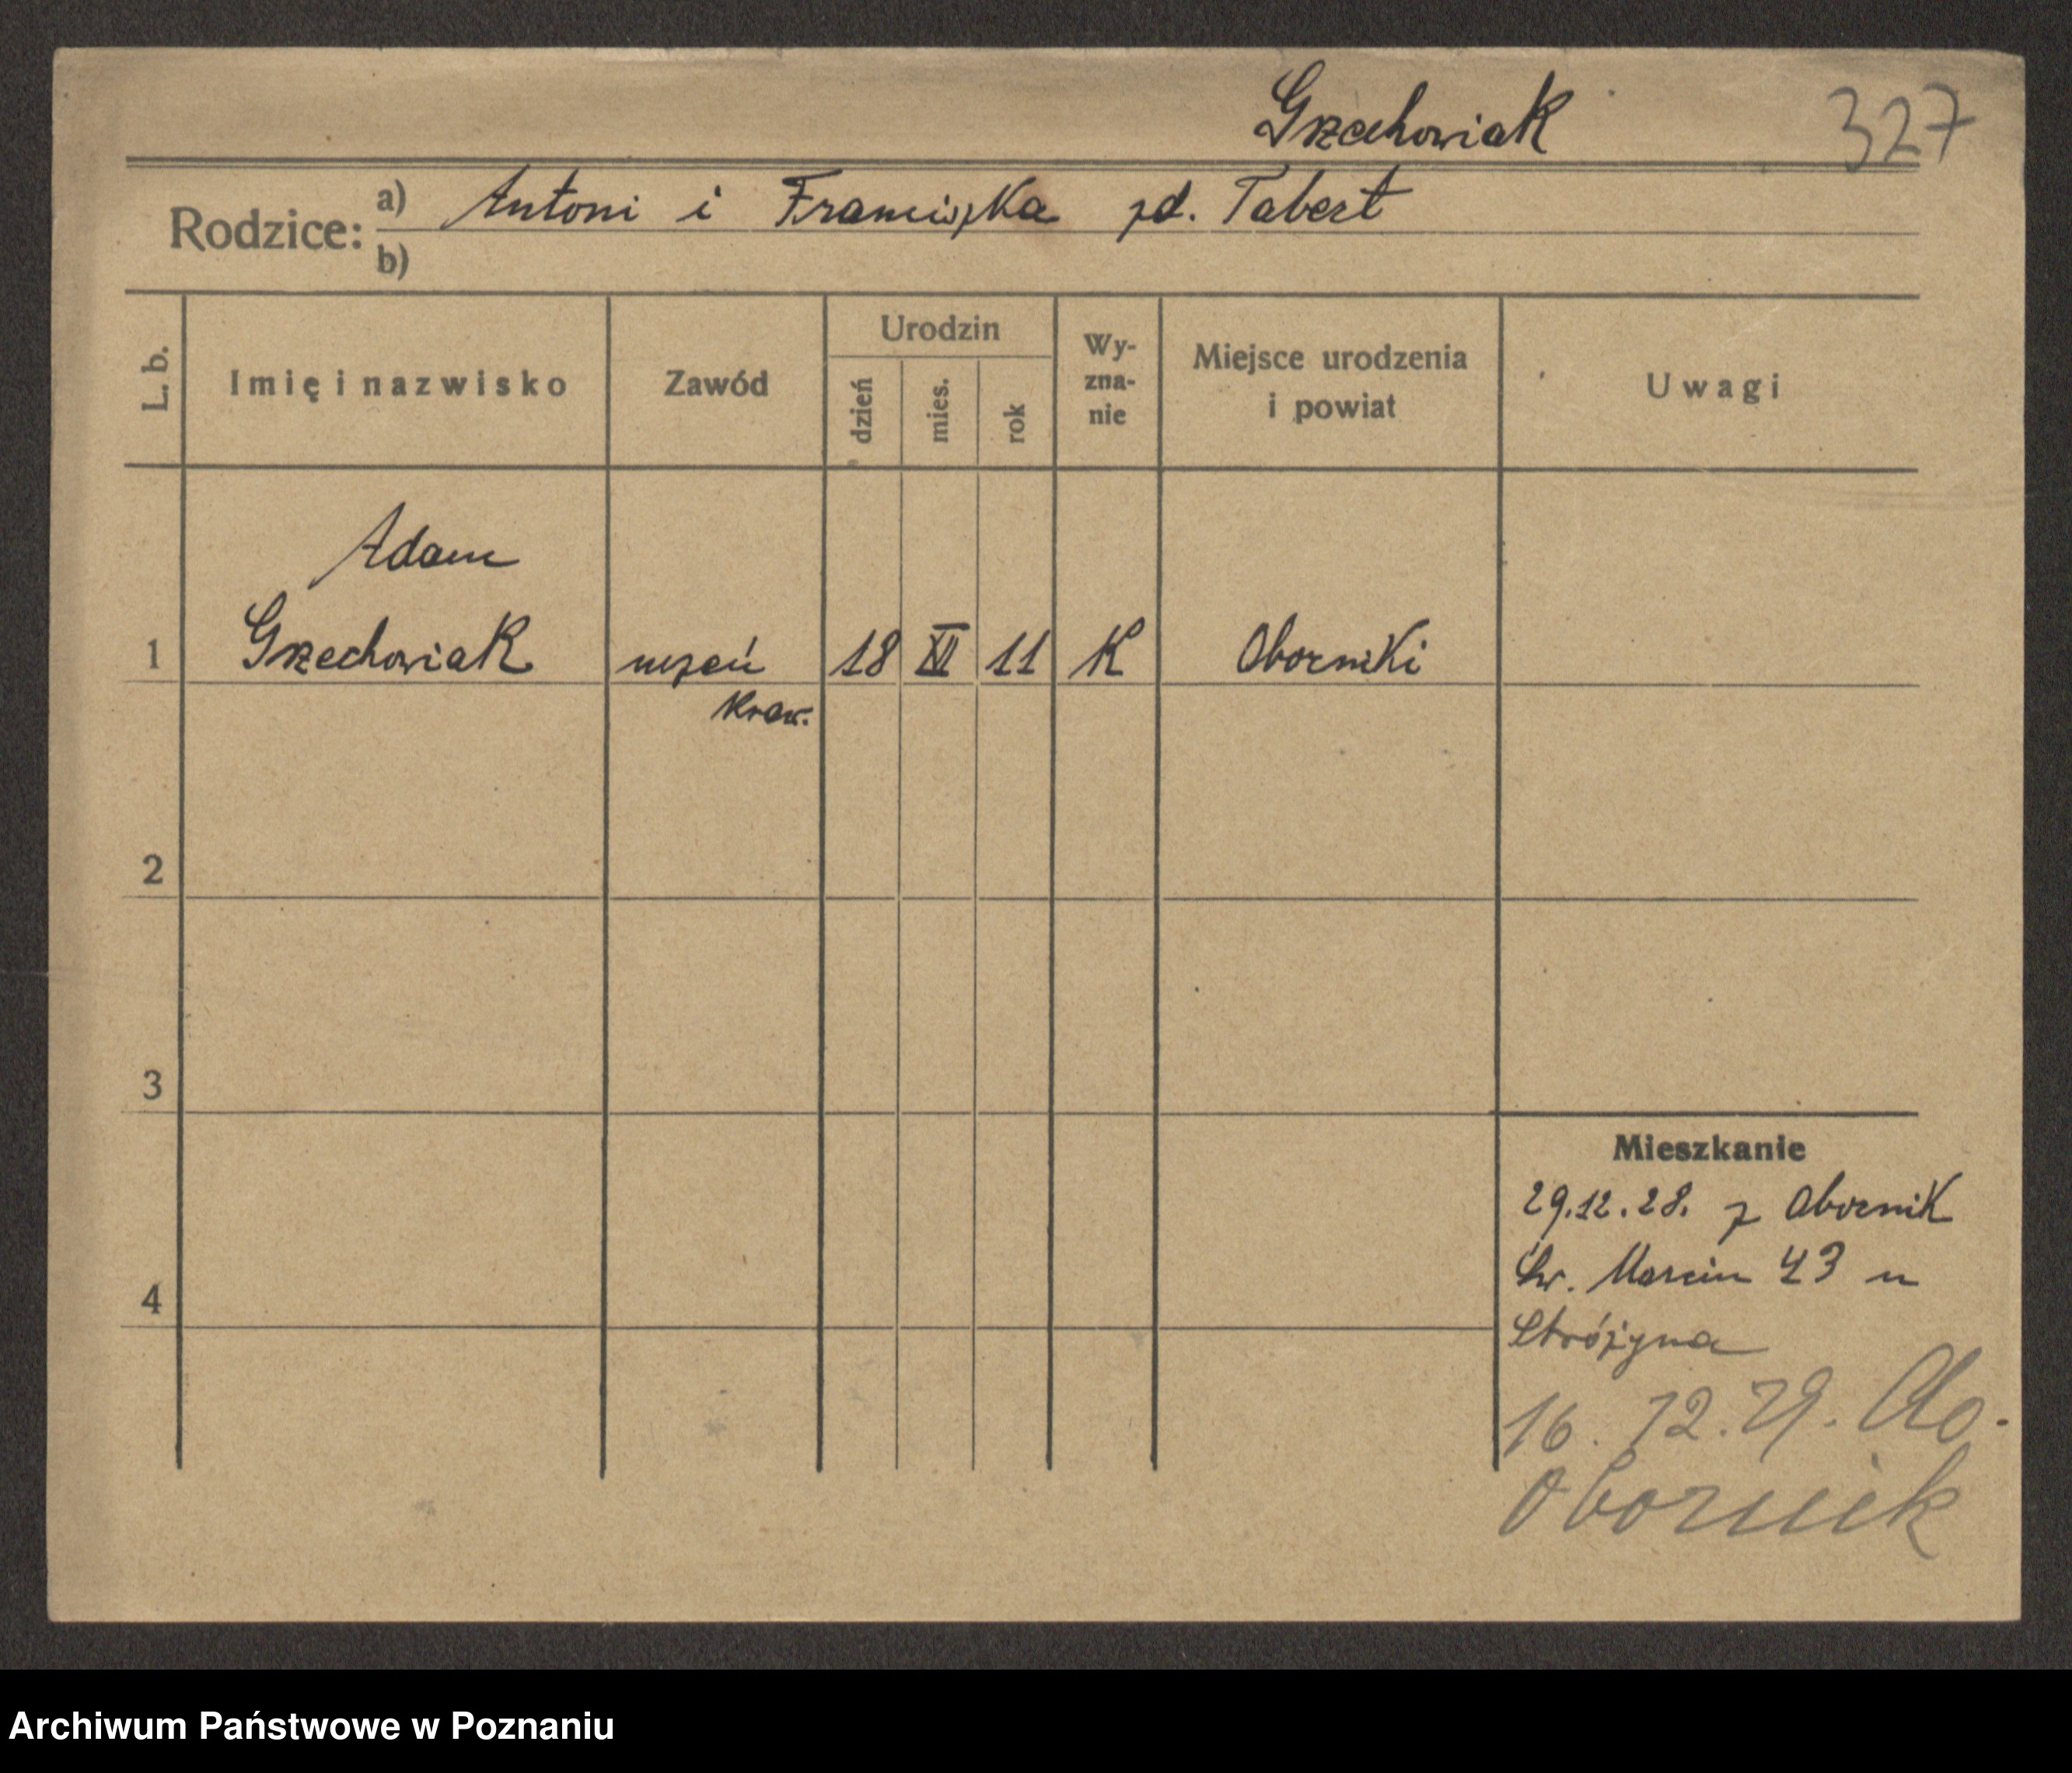 Grzechowiak 327
Rodzice: a) Antoni i Franciszka zd. Tabert
b)
L. b. Imię i nazwisko Zawód Urodzin dzień mies. rok Wy-zna-nie Miejsce urodzenia i powiat Uwagi
Adam
1 Grzechowiak uczeń 18 XI 11 K Oborniki
kraw.
2
3
Mieszkanie
29.12.28. z Obornik
Św. Marcin 43 u
4
Stróżyna
16. 12. 29. do.
Obornik
Archiwum Państwowe w Poznaniu